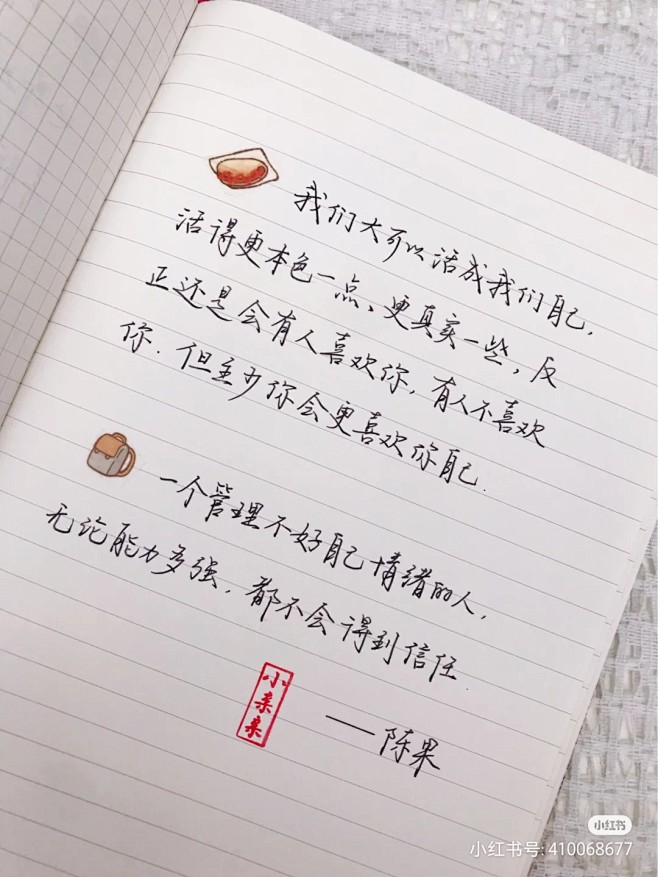 我们大可以活成我们自己,
活得更本色一点、更真实一些,反
正还是会有人喜欢你,有人不喜欢
你.但至少你会更喜欢你自己.
一个管理不好自己情绪的人,
无论能力多强,都不会得到信任.
——陈果
小亲亲
小红书
小红书号: 410068677